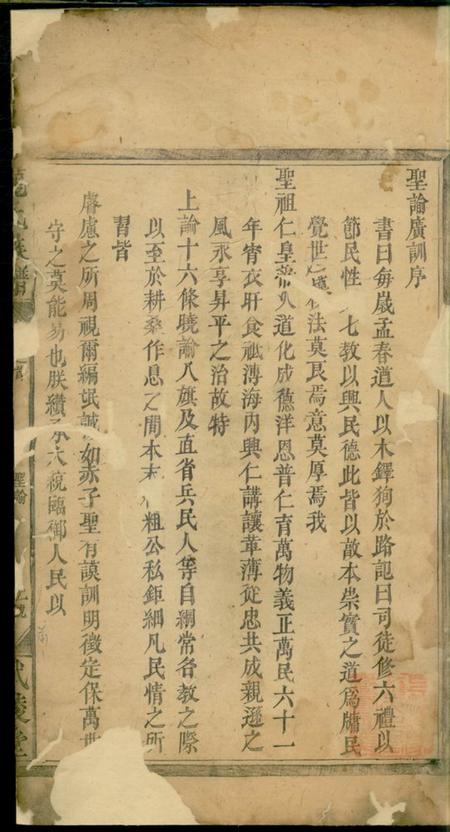 聖諭廣訓序
書曰每嵗孟春遒人以木鐸狥於路記曰司徒修六禮以
節民性 七教以興民德此皆以敦本崇實之道爲牖民
覺世之 法莫良焉意莫厚焉我
聖祖仁皇帝久道化成德洋恩普仁育萬物義正萬民六十一
年宵衣旰食祇溥海内興仁講讓革薄從忠共成親遜之
風永享昇平之治故特
上諭十六條曉諭八旗及直省兵民人等自綱常名教之際
以至於耕桑作息之間本末 粗公私鉅細凡民情之所
習皆
睿慮之所周視爾編氓誠如赤子聖有謨訓明徵定保萬世
守之莫能易也朕纘承大統臨御人民以
族譜
聖諭
武陵堂